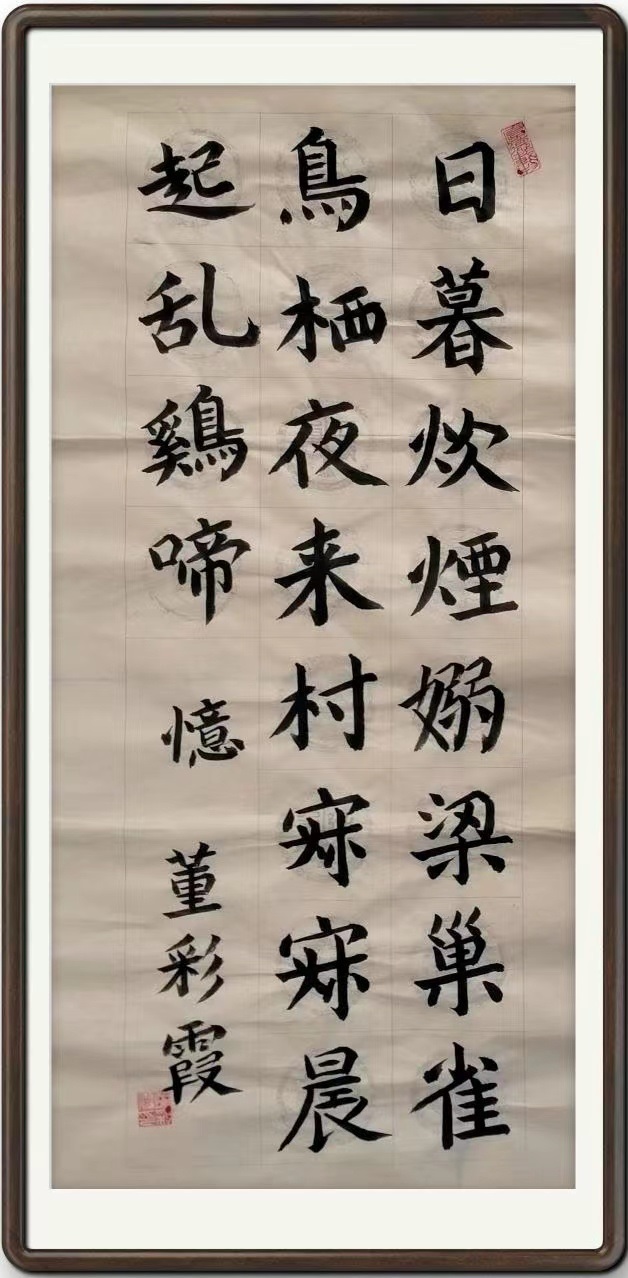 日暮炊煙嫋梁巢雀
鳥栖夜来村寂寂晨
起乱鷄啼 憶 董彩霞